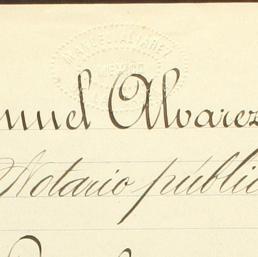 MANUEL ALVAREZ
MEXICO
nuel Alvarez
Notario públic